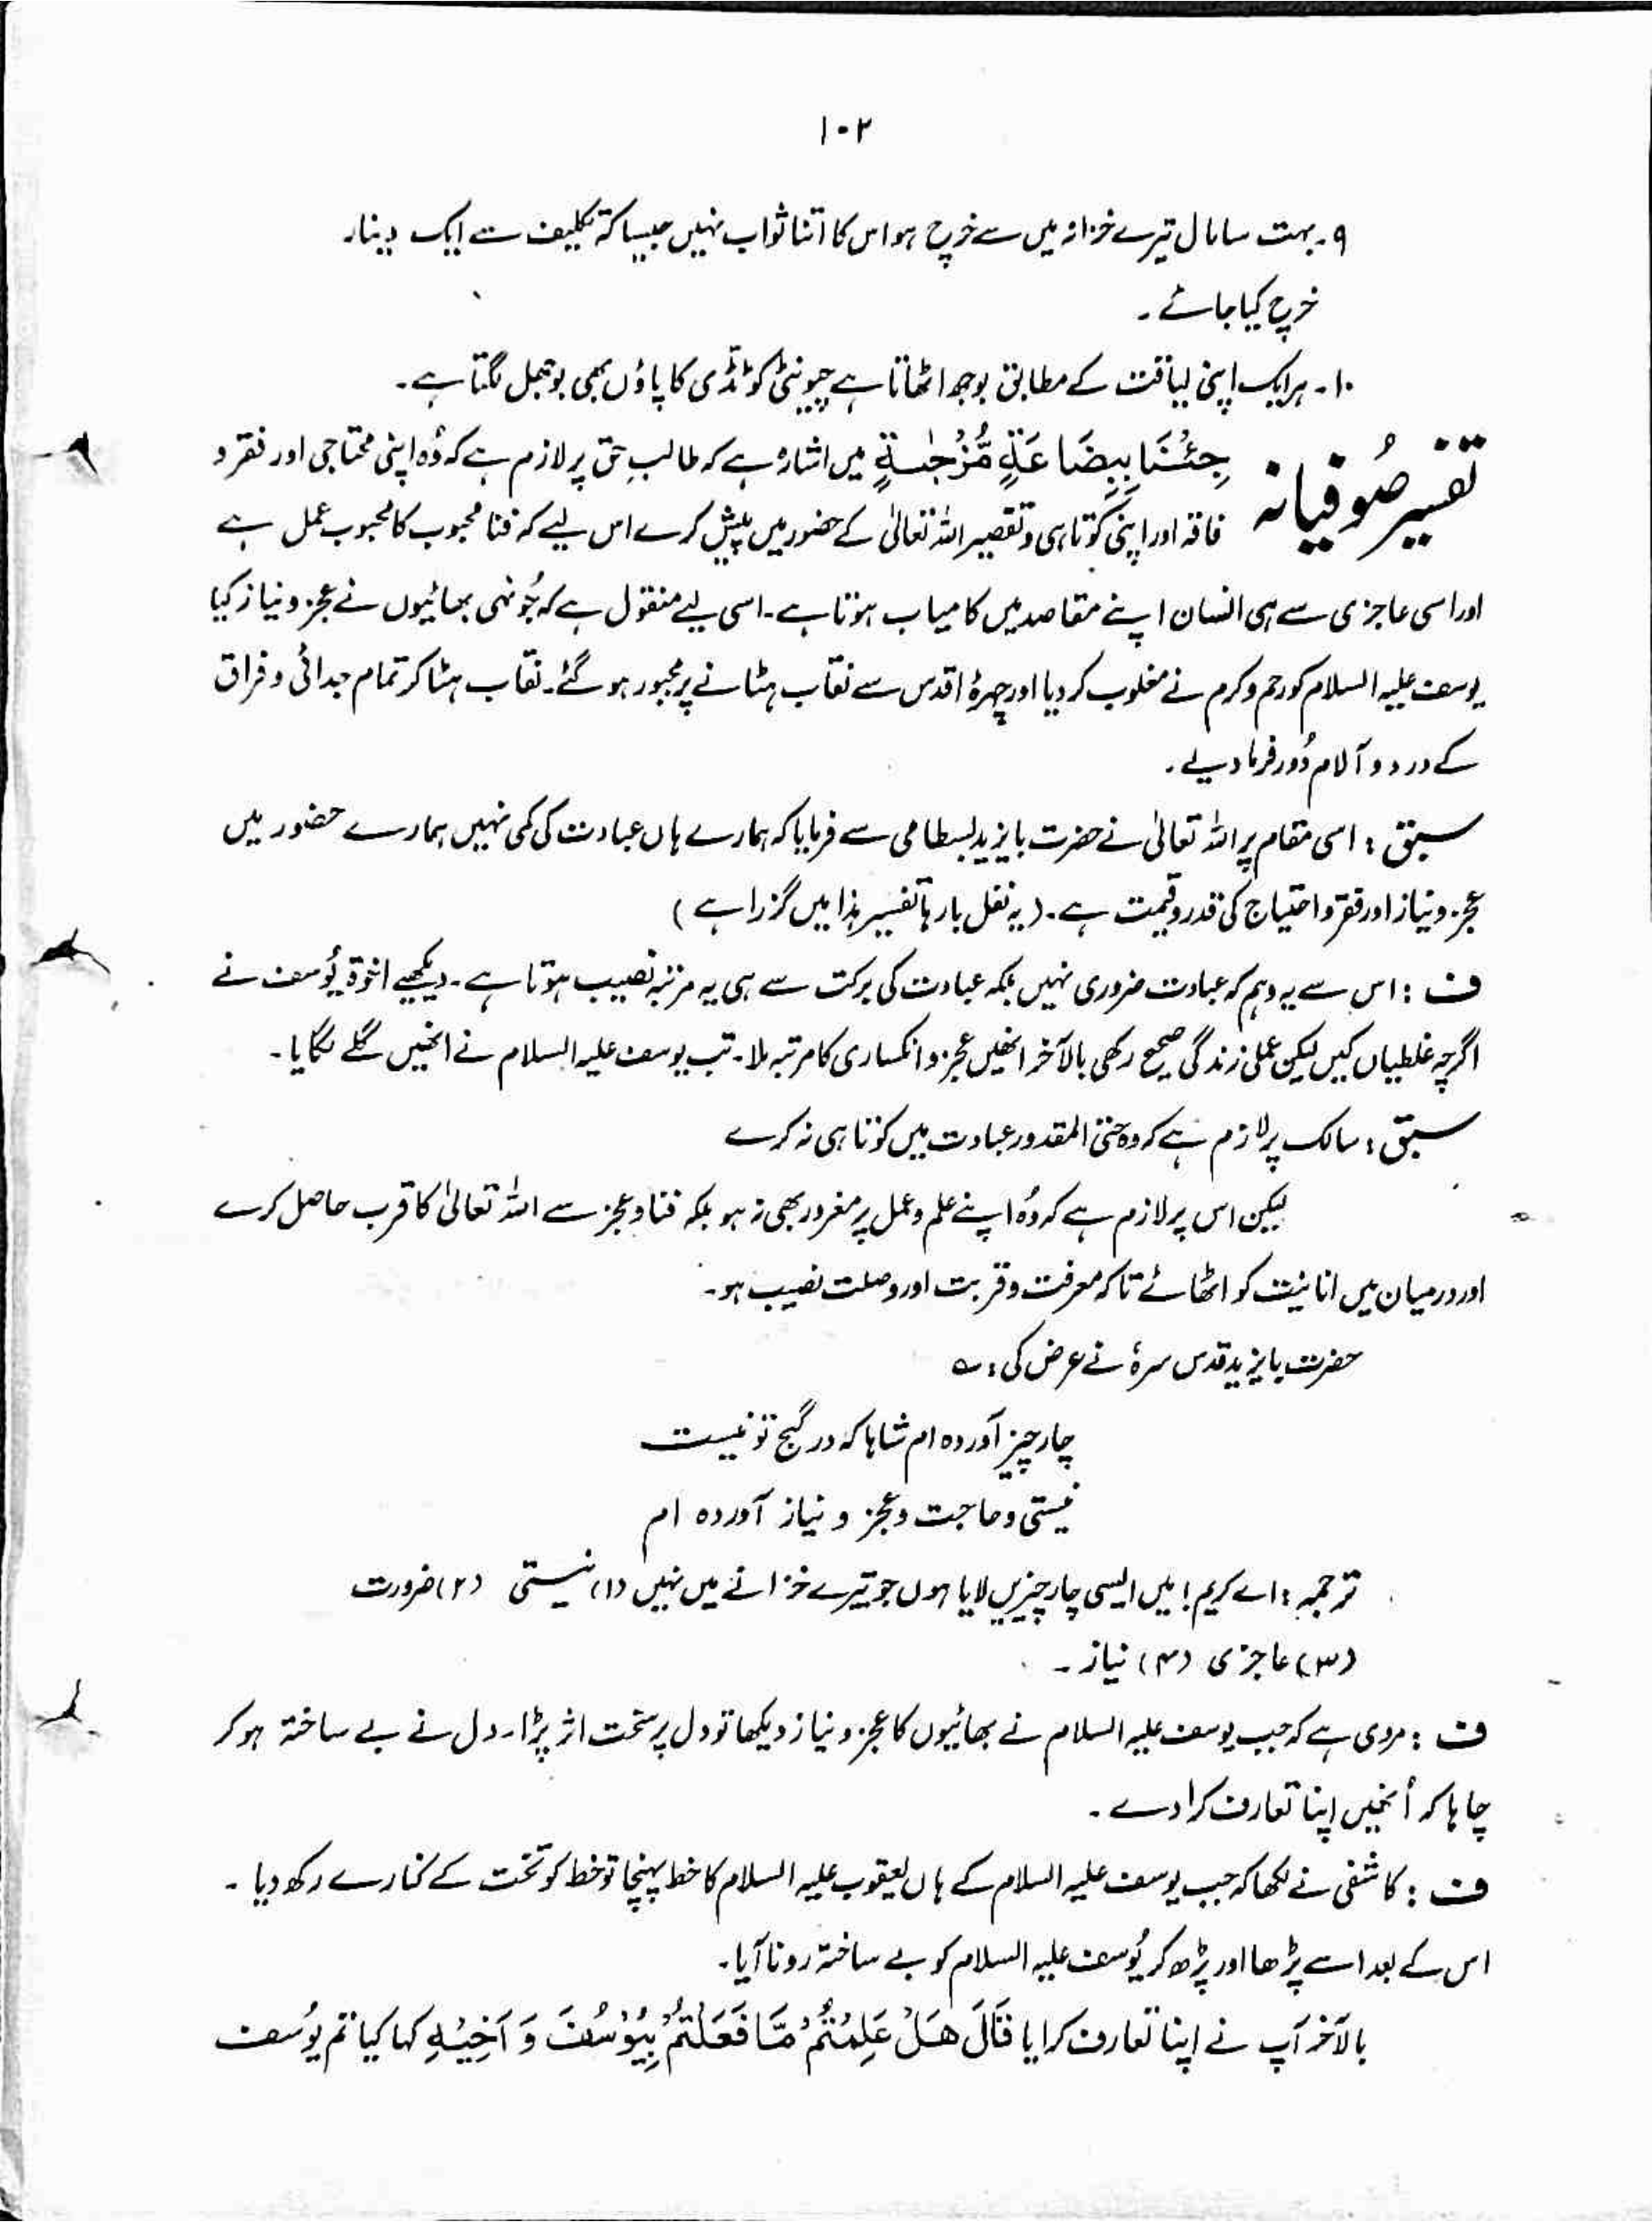 ۱۰۲
۹۔ بہت سا مال تیرے خزانہ میں سے خرچ ہو اس کا اتنا ثواب نہیں جیسا کہ تکلیف سے ایک دینار
خرچ کیا جائے ۔
۱۰۔ ہر ایک اپنی لیاقت کے مطابق بوجھ اٹھاتا ہے چیونٹی کو ٹڈی کا پاؤں بھی بوجھل لگتا ہے ۔
تفسیر صُوفیانہ جِئْنَا بِبِضَاعَةٍ مُّزْجٰىةٍ میں اشارہ ہے کہ طالبِ حق پر لازم ہے کہ وُہ اپنی محتاجی اور فقر و
فاقہ اور اپنی کوتاہی و تقصیر اللہ تعالیٰ کے حضور میں پیش کرے اس لیے کہ فنا محبوب کا محبوب عمل ہے
اور اسی عاجزی سے ہی انسان اپنے مقاصد میں کامیاب ہوتا ہے ۔ اسی لیے منقول ہے کہ جُونہی بھائیوں نے عجز و نیاز کیا
یوسف علیہ السلام کو رحم و کرم نے مغلوب کر دیا اور چہرۂ اقدس سے نقاب ہٹانے پر مجبور ہو گئے ۔ نقاب ہٹا کر تمام جدائی و فراق
کے درد و آلام دُور فرما دیے ۔
سبق : اسی مقام پر اللہ تعالیٰ نے حضرت بایزید بسطامی سے فرمایا کہ ہمارے ہاں عبادت کی کمی نہیں ہمارے حضور میں
عجز و نیاز اور فقر و احتیاج کی قدر و قیمت ہے ۔ ( یہ نقل بارہا تفسیر ہٰذا میں گزرا ہے )
ف : اس سے یہ وہم کہ عبادت ضروری نہیں بلکہ عبادت کی برکت سے ہی یہ مرتبہ نصیب ہوتا ہے ۔ دیکھیے اخوۃ یُوسف نے
اگرچہ غلطیاں کیں لیکن عملی زندگی صحیح رکھی بالآخر انھیں عجز و انکساری کا مرتبہ ملا ۔ تب یوسف علیہ السلام نے انھیں گلے لگایا ۔
سبق : سالک پر لازم ہے کہ وہ حتی المقدور عبادت میں کوتاہی نہ کرے
لیکن اس پر لازم ہے کہ وُہ اپنے علم و عمل پر مغرور بھی نہ ہو بلکہ فنا و عجز سے اللہ تعالیٰ کا قرب حاصل کرے
اور درمیان میں انانیت کو اٹھائے تاکہ معرفت و قربت اور وصلت نصیب ہو ۔
حضرت بایزید قدس سرہٗ نے عرض کی : ؎
چار چیز آوردہ ام شاہا کہ در گنج تو نیست
نیستی و حاجت و عجز و نیاز آوردہ ام
ترجمہ : اے کریم ! میں ایسی چار چیزیں لایا ہوں جو تیرے خزانے میں نہیں (۱) نیستی (۲) ضرورت
(۳) عاجزی (۴) نیاز ۔
ف : مروی ہے کہ جب یوسف علیہ السلام نے بھائیوں کا عجز و نیاز دیکھا تو دل پر سخت اثر پڑا ۔ دل نے بے ساختہ ہو کر
چاہا کہ اُنھیں اپنا تعارف کرا دے ۔
ف : کاشفی نے لکھا کہ جب یوسف علیہ السلام کے ہاں یعقوب علیہ السلام کا خط پہنچا تو خط کو تخت کے کنارے رکھ دیا ۔
اس کے بعد اسے پڑھا اور پڑھ کر یُوسف علیہ السلام کو بے ساختہ رونا آیا ۔
بالآخر آپ نے اپنا تعارف کرایا قَالَ هَلْ عَلِمْتُمْ مَّا فَعَلْتُمْ بِيُوْسُفَ وَ اَخِيْهِ کہا کیا تم یوُسف